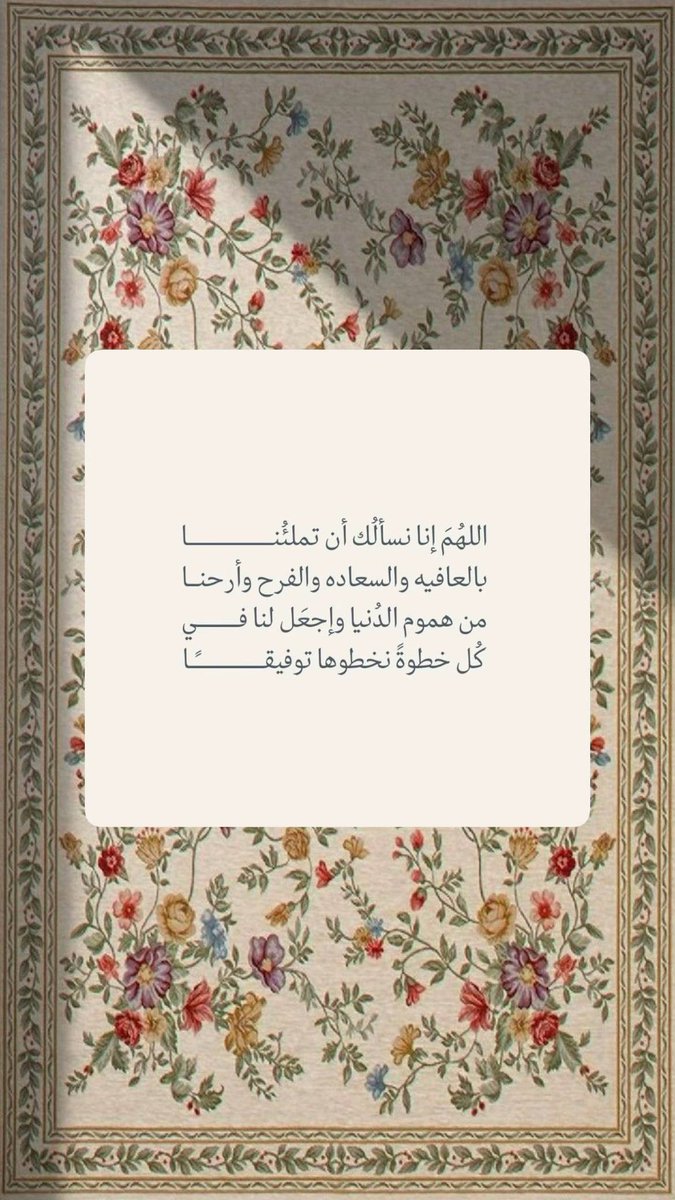 اللهُمَ إنا نسألُك أن تملئُنـــــــــــا
بالعافيه والسعاده والفرح وأرحنـا
من هموم الدُنيا وإجعَل لنا فـــــي
كُل خطوةً نخطوها توفيقـــــــــــًا